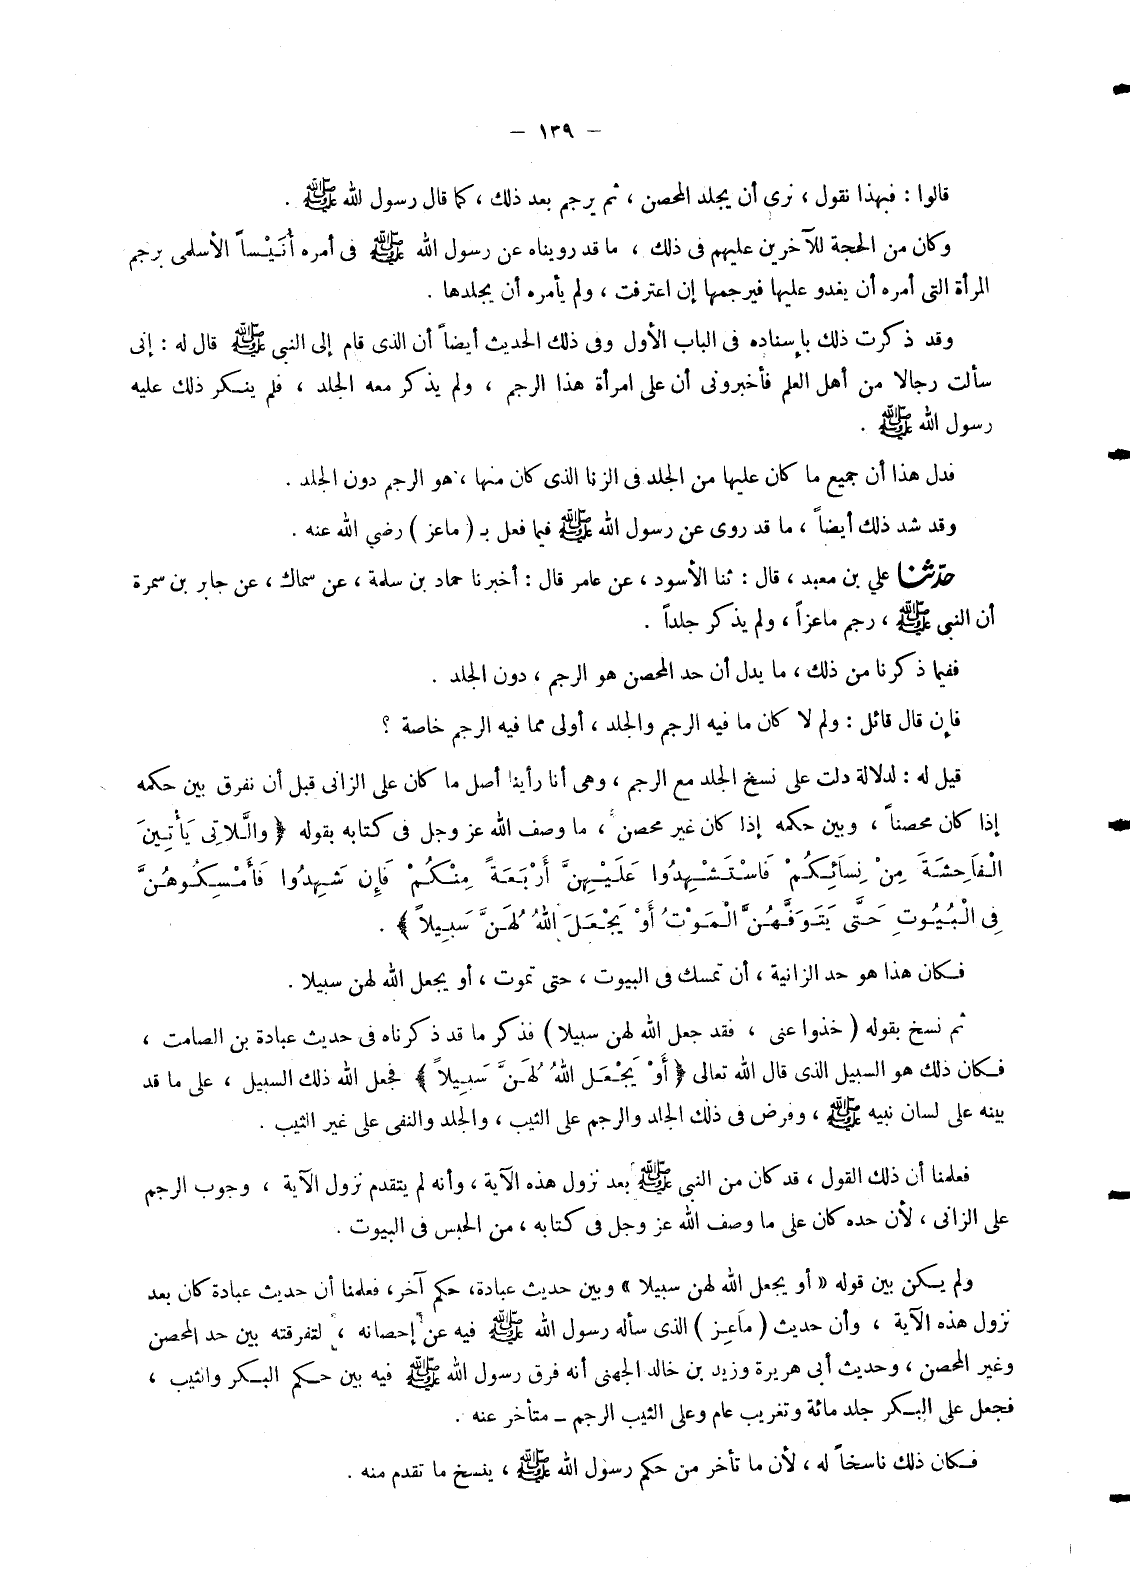 – ١٣٩ –
قالوا : فبهذا نقول ، نرى أن يجلد المحصن ، ثم يرجم بعد ذلك ، كما قال رسول الله ﷺ .
وكان من الحجة للآخرين عليهم فى ذلك ، ما قد رويناه عن رسول الله ﷺ فى أمره أُنَيْساً الأسلمى برجم
المرأة التى أمره أن يغدو عليها فيرجمها إن اعترفت ، ولم يأمره أن يجلدها .
وقد ذكرت ذلك بإسناده فى الباب الأول وفى ذلك الحديث أيضاً أن الذى قام إلى النبى ﷺ قال له : إنى
سألت رجالا من أهل العلم فأخبرونى أن على امرأة هذا الرجم ، ولم يذكر معه الجلد ، فلم ينكر ذلك عليه
رسول الله ﷺ .
فدل هذا أن جميع ما كان عليها من الجلد فى الزنا الذى كان منها ، هو الرجم دون الجلد .
وقد شد ذلك أيضاً ، ما قد روى عن رسول الله ﷺ فيما فعل بـ ( ماعز ) رضي الله عنه .
حدّثنا علي بن معبد ، قال : ثنا الأسود ، عن عامر قال : أخبرنا حماد بن سلمة ، عن سماك ، عن جابر بن سمرة
أن النبى ﷺ ، رجم ماعزاً ، ولم يذكر جلداً .
ففيما ذكرنا من ذلك ، ما يدل أن حد المحصن هو الرجم ، دون الجلد .
فإن قال قائل : ولم لا كان ما فيه الرجم والجلد ، أولى مما فيه الرجم خاصة ؟
قيل له : لدلالة دلت على نسخ الجلد مع الرجم ، وهى أنا رأينا أصل ما كان على الزانى قبل أن نفرق بين حكمه
إذا كان محصناً ، وبين حكمه إذا كان غير محصن ، ما وصف الله عز وجل فى كتابه بقوله ﴿ والَّلاتِى يَأْتِينَ
الْفَاحِشَةَ مِنْ نِسَائِكُمْ فَاسْتَشْهِدُوا عَلَيْهِنَّ أَرْبَعَةً مِنْكُمْ فَإِن شَهِدُوا فَأَمْسِكُوهُنَّ
فِى الْبُيُوتِ حَتَّى يَتَوَفَّهُنَّ الْمَوْتُ أَوْ يَجْعَلَ اللهُ لَهُنَّ سَبِيلاً ﴾ .
فكان هذا هو حد الزانية ، أن تمسك فى البيوت ، حتى تموت ، أو يجعل الله لهن سبيلا .
ثم نسخ بقوله ( خذوا عنى ، فقد جعل الله لهن سبيلا ) فذكر ما قد ذكرناه فى حديث عبادة بن الصامت ،
فكان ذلك هو السبيل الذى قال الله تعالى ﴿ أَوْ يَجْعَلَ اللهُ لَهُنَّ سَبِيلاً ﴾ فجعل الله ذلك السبيل ، على ما قد
بينه على لسان نبيه ﷺ ، وفرض فى ذلك الجلد والرجم على الثيب ، والجلد والنفى على غير الثيب .
فعلمنا أن ذلك القول ، قد كان من النبى ﷺ بعد نزول هذه الآية ، وأنه لم يتقدم نزول الآية ، وجوب الرجم
على الزانى ، لأن حده كان على ما وصف الله عز وجل فى كتابه ، من الحبس فى البيوت .
ولم يكن بين قوله « أو يجعل الله لهن سبيلا » وبين حديث عبادة، حكم آخر، فعلمنا أن حديث عبادة كان بعد
نزول هذه الآية ، وأن حديث ( ماعِز ) الذى سأله رسول الله ﷺ فيه عن إحصانه ، لتفرقته بين حد المحصن
وغير المحصن ، وحديث أبى هريرة وزيد بن خالد الجهنى أنه فرق رسول الله ﷺ فيه بين حكم البكر والثيب ،
فجعل على البكر جلد مائة وتغريب عام وعلى الثيب الرجم – متأخر عنه .
فكان ذلك ناسخاً له ، لأن ما تأخر من حكم رسول الله ﷺ ، ينسخ ما تقدم منه .